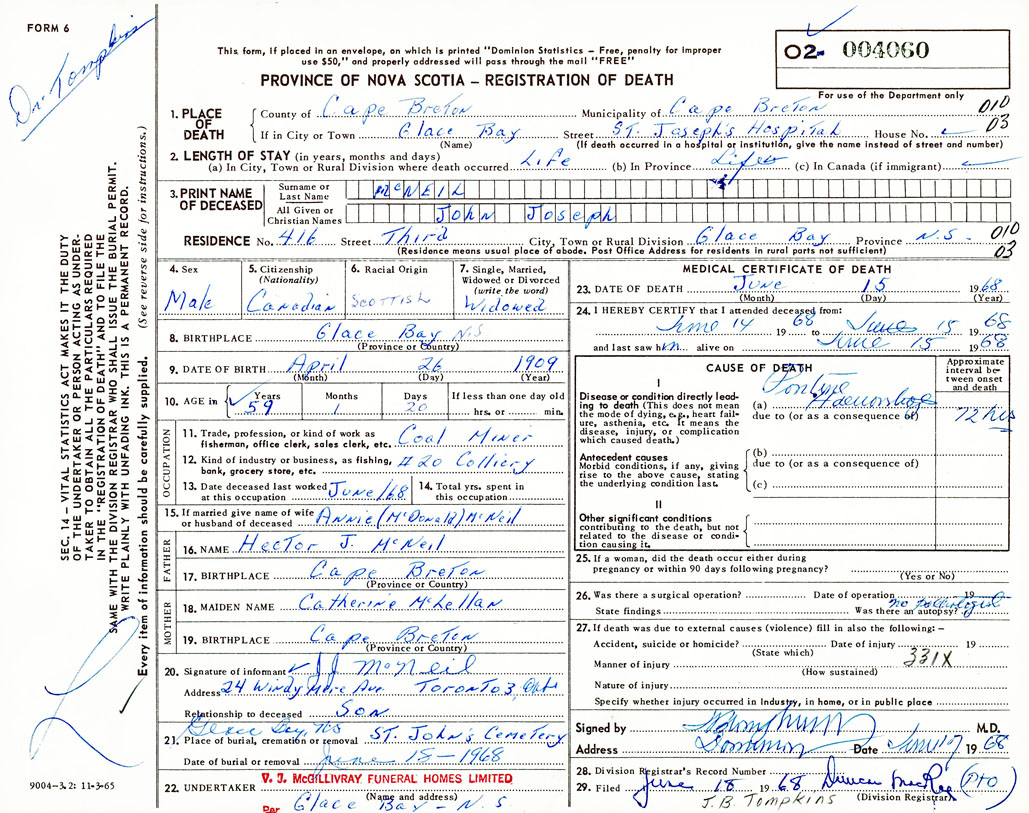 FORM 6
Dr. Tompkins
This form, if placed in an envelope, on which is printed "Dominion Statistics – Free, penalty for improper
use $50," and properly addressed will pass through the mail "FREE"
PROVINCE OF NOVA SCOTIA – REGISTRATION OF DEATH
02- 004060
For use of the Department only
1. PLACE OF DEATH County of Cape Breton Municipality of Cape Breton 010
If in City or Town Glace Bay Street ST. Joseph's Hospital House No. 03
(Name) (If death occurred in a hospital or institution, give the name instead of street and number)
2. LENGTH OF STAY (in years, months and days)
(a) In City, Town or Rural Division where death occurred Life (b) In Province Life (c) In Canada (if immigrant)
3. PRINT NAME OF DECEASED Surname or Last Name McNEIL
All Given or Christian Names John Joseph
RESIDENCE No. 416 Street Third City, Town or Rural Division Glace Bay Province N.S. 010
(Residence means usual place of abode. Post Office Address for residents in rural parts not sufficient) 03
SEC. 14 – VITAL STATISTICS ACT MAKES IT THE DUTY
OF THE UNDERTAKER OR PERSON ACTING AS UNDER-
TAKER TO OBTAIN ALL THE PARTICULARS REQUIRED
IN THE "REGISTRATION OF DEATH" AND TO FILE THE
SAME WITH THE DIVISION REGISTRAR WHO SHALL ISSUE THE BURIAL PERMIT.
WRITE PLAINLY WITH UNFADING INK. THIS IS A PERMANENT RECORD.
Every item of information should be carefully supplied. (See reverse side for instructions.)
4. Sex Male
5. Citizenship (Nationality) Canadian
6. Racial Origin Scottish
7. Single, Married, Widowed or Divorced (write the word) Widowed
8. BIRTHPLACE Glace Bay N.S
(Province or Country)
9. DATE OF BIRTH April 26 1909
(Month) (Day) (Year)
10. AGE in Years Months Days If less than one day old
59 1 20 hrs. or min.
OCCUPATION
11. Trade, profession, or kind of work as fisherman, office clerk, sales clerk, etc. Coal Miner
12. Kind of industry or business, as fishing, bank, grocery store, etc. #20 Colliery
13. Date deceased last worked at this occupation June/68
14. Total yrs. spent in this occupation
15. If married give name of wife or husband of deceased Annie (McDonald) McNeil
FATHER
16. NAME Hector J. McNeil
17. BIRTHPLACE Cape Breton
(Province or Country)
MOTHER
18. MAIDEN NAME Catherine McLellan
19. BIRTHPLACE Cape Breton
(Province or Country)
20. Signature of informant J.J. McNeil
Address 24 Windy Mere Ave Toronto 3, Ont
Relationship to deceased SON
Glace Bay, NS
21. Place of burial, cremation or removal ST. John's Cemetery
Date of burial or removal June 18-1968
22. UNDERTAKER V. J. McGILLIVRAY FUNERAL HOMES LIMITED
(Name and address)
Per Glace Bay - N.S.
9004-3.2: 11-3-65
MEDICAL CERTIFICATE OF DEATH
23. DATE OF DEATH June 15 1968
(Month) (Day) (Year)
24. I HEREBY CERTIFY that I attended deceased from:
June 14 1968 to June 15 1968
and last saw him alive on June 15 1968
CAUSE OF DEATH
Approximate interval between onset and death
I
Disease or condition directly lead-
ing to death (This does not mean
the mode of dying, e.g., heart fail-
ure, asthenia, etc. It means the
disease, injury, or complication
which caused death.)
(a) Pontine Haemorrhage 72 hrs
due to (or as a consequence of)
Antecedent causes
Morbid conditions, if any, giving
rise to the above cause, stating
the underlying condition last.
(b)
due to (or as a consequence of)
(c)
II
Other significant conditions
contributing to the death, but not
related to the disease or condi-
tion causing it.
25. If a woman, did the death occur either during
pregnancy or within 90 days following pregnancy?
(Yes or No)
26. Was there a surgical operation? Date of operation 19
State findings Was there an autopsy? no pathologist
27. If death was due to external causes (violence) fill in also the following: –
Accident, suicide or homicide? Date of injury 19
(State which) 331X
Manner of injury
(How sustained)
Nature of injury
Specify whether injury occurred in Industry, in home, or in public place
Signed by M.D.
Address Dominion Date June 17 1968
28. Division Registrar's Record Number
29. Filed June 18 1968 Duncan MacRae (PRO)
J.B. TOMPKINS (Division Registrar)